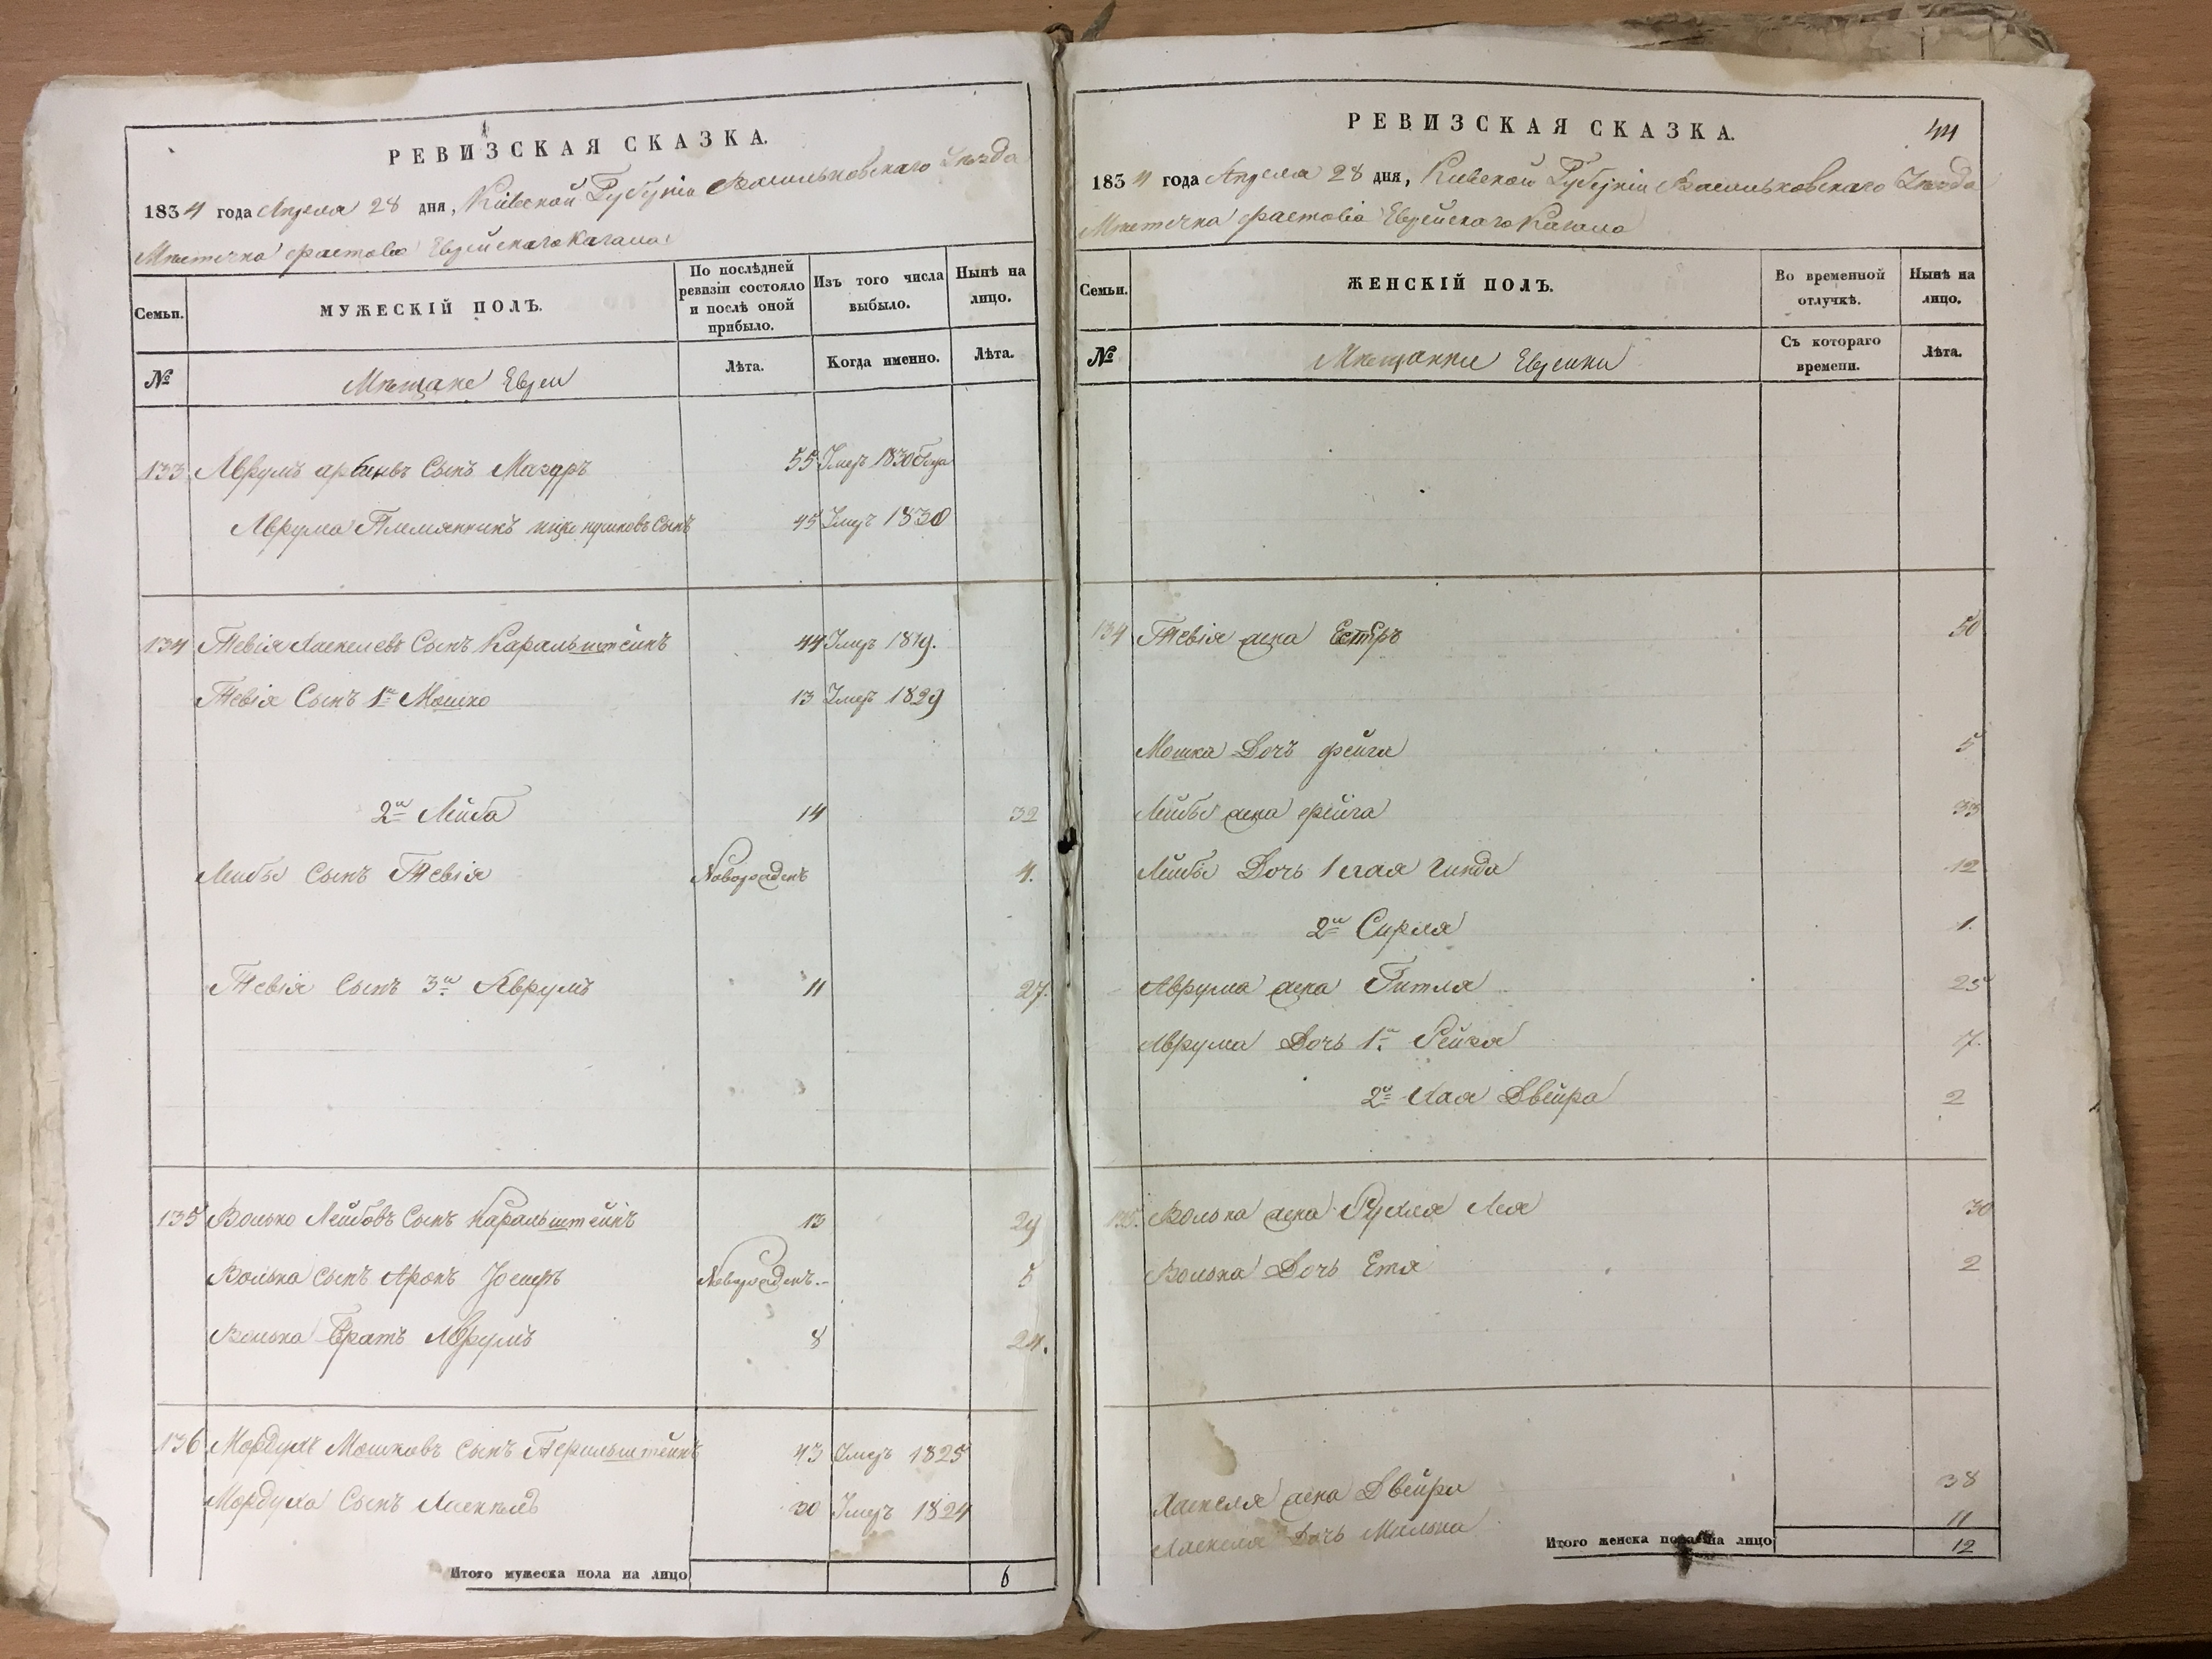 РЕВИЗСКАЯ СКАЗКА.
1834 года Апреля 28 дня, Кіевской Губерніи Васильковскаго Уѣзда
Мѣстечка Фастова Еврейскаго Кагала
Семьи.
МУЖЕСКІЙ ПОЛЪ.
По послѣдней ревизіи состояло и послѣ оной прибыло.
Изъ того числа выбыло.
Нынѣ на лицо.
№
Мѣщане Евреи
Лѣта.
Когда именно.
Лѣта.
133 Аврумъ сынъ 55 Умеръ 1830 Года
Аврума Племянникъ сынъ 45 Умеръ 1830
134 Тевія Хаскелевъ Сынъ Каральштейнъ 44 Умеръ 1819.
Тевія Сынъ 1й Мошко 13 Умеръ 1829
2й Лейба 14 32
Лейбы Сынъ Тевія Новорожденъ 4.
Тевія Сынъ 3й Аврумъ 11 27.
135 Волько Лейбовъ Сынъ Каральштейнъ 13 29
Волька сынъ Аронъ Іосифъ Новорожденъ 5
Волька Братъ Аврумъ 8 24.
136 Мордухъ Мошковъ сынъ Перильштейнъ 43 Умеръ 1825
Мордуха Сынъ Хаскель 20 Умеръ 1824
Итого мужеска пола на лицо 6
РЕВИЗСКАЯ СКАЗКА. 44
1834 года Апреля 28 дня, Кіевской Губерніи Васильковскаго Уѣзда
Мѣстечка Фастова Еврейскаго Кагала
Семьи.
ЖЕНСКІЙ ПОЛЪ.
Во временной отлучкѣ.
Нынѣ на лицо.
№
Мѣщанки Еврейки
Съ котораго времени.
Лѣта.
134 Тевія жена Естеръ 50
Мошка Дочь Фейга 5
Лейбы жена Фейга 33
Лейбы Дочь 1 Хая Гинда 12
2я Сирля 1.
Аврума жена Гитля 25
Аврума Дочь 1я Рейза 7.
2я Хая Двейра 2
135. Волька жена Рухля Лея 30
Волька Дочь Етя 2
Хаскеля жена Двейра 38
Хаскеля Дочь Малька 11
Итого женска пола на лицо 12